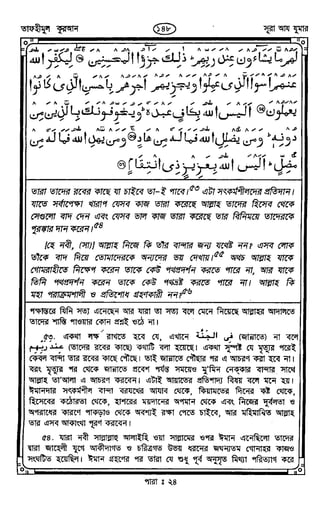 তাফহীমুল কুরআন ১৪৮ সূরা আয যুমার
لَهُمْ مَّا يَشَآءُوْنَ عِنْدَ رَبِّهِمْ ؕ ذٰلِكَ جَزٰٓؤُا الْمُحْسِنِيْنَ ۚ لِيُكَفِّرَ اللّٰهُ
عَنْهُمْ اَسْوَاَ الَّذِيْ عَمِلُوْا وَيَجْزِيَهُمْ اَجْرَهُمْ بِاَحْسَنِ الَّذِيْ كَانُوْا
يَعْمَلُوْنَ ۞ اَلَيْسَ اللّٰهُ بِكَافٍ عَبْدَهٗ ؕ وَيُخَوِّفُوْنَكَ بِالَّذِيْنَ مِنْ
دُوْنِهٖ ؕ وَمَنْ يُّضْلِلِ اللّٰهُ فَمَا لَهٗ مِنْ هَادٍ ۚ وَمَنْ يَّهْدِ اللّٰهُ فَمَا لَهٗ مِنْ
مُّضِلٍّ ؕ اَلَيْسَ اللّٰهُ بِعَزِيْزٍ ذِي انْتِقَامٍ ۞
তারা তাদের রবের কাছে যা চাইবে তা-ই পাবে।৫৩ এটা সৎকর্মশীলদের প্রতিদান।
যাতে সর্বাপেক্ষা খারাপ যেসব কাজ তারা করেছে আল্লাহ তাদের হিসেব থেকে
সেগুলো বাদ দেন এবং যেসব ভাল কাজ তারা করেছে তার বিনিময়ে তাদেরকে
পুরস্কার দান করেন।৫৪
[হে নবী, (সা)] আল্লাহ নিজে কি তাঁর বান্দার জন্য যথেষ্ট নন? এসব লোক
তাঁকে বাদ দিয়ে তোমাদেরকে অন্যদের ভয় দেখায়।৫৫ অথচ আল্লাহ যাকে
গোমরাহীতে নিক্ষেপ করেন তাকে কেউ পথপ্রদর্শন করতে পারে না, আর যাকে
তিনি পথপ্রদর্শন করেন তাকে কেউ পথভ্রষ্ট করতে পারে না। আল্লাহ কি
মহা পরাক্রমশালী ও প্রতিশোধ গ্রহণকারী নন?৫৬
পক্ষান্তরে যিনি সত্য এনেছেন আর যারা তা সত্য বলে মেনে নিয়েছে আল্লাহর আদালতে
তাদের শাস্তি পাওয়ার কোন প্রশ্নই ওঠে না।
৫৩. একথা লক্ষ্য রাখতে হবে যে, এখানে فِي الْجَنَّةِ (জান্নাতে) না বলে
عِنْدَ رَبِّهِمْ (তাদের রবের কাছে) কথাটি বলা হয়েছে। একথা সুস্পষ্ট যে মৃত্যুর পরেই
কেবল বান্দা তার রবের কাছে পৌঁছে। তাই জান্নাতে পৌঁছার পর এ আচরণ করা হবে না।
বরং মৃত্যুর পর থেকে জান্নাতে প্রবেশ পর্যন্ত সময়েও মু'মিন নেককার বান্দার সাথে
আল্লাহ তা'আলা এ আচরণ করবেন। এটাই আয়াতের প্রতিপাদ্য বিষয় বলে মনে হয়।
ঈমানদার সৎকর্মশীল বান্দা বরযখের আযাব থেকে, কিয়ামতের দিনের কষ্ট থেকে,
হিসেবের কঠোরতা থেকে, হাশরের ময়দানের অপমান থেকে এবং নিজের দুর্বলতা ও
অপরাধের কারণে পাকড়াও থেকে অবশ্যই রক্ষা পেতে চাইবে, আর মহিমান্বিত আল্লাহ
তার এসব আকাংখা পূরণ করবেন।
৫৪. যারা নবী সাল্লাল্লাহু আলাইহি ওয়া সাল্লামের ওপর ঈমান এনেছিলো তাদের
দ্বারা জাহেলী যুগে আকীদাগত ও চরিত্রগত উভয় ধরনের জঘন্যতম গোনাহর কাজও
সংঘটিত হয়েছিল। ঈমান গ্রহণের পর তারা যে শুধু পূর্ব অনুসৃত মিথ্যা পরিত্যাগ করে
পারা : ২৪